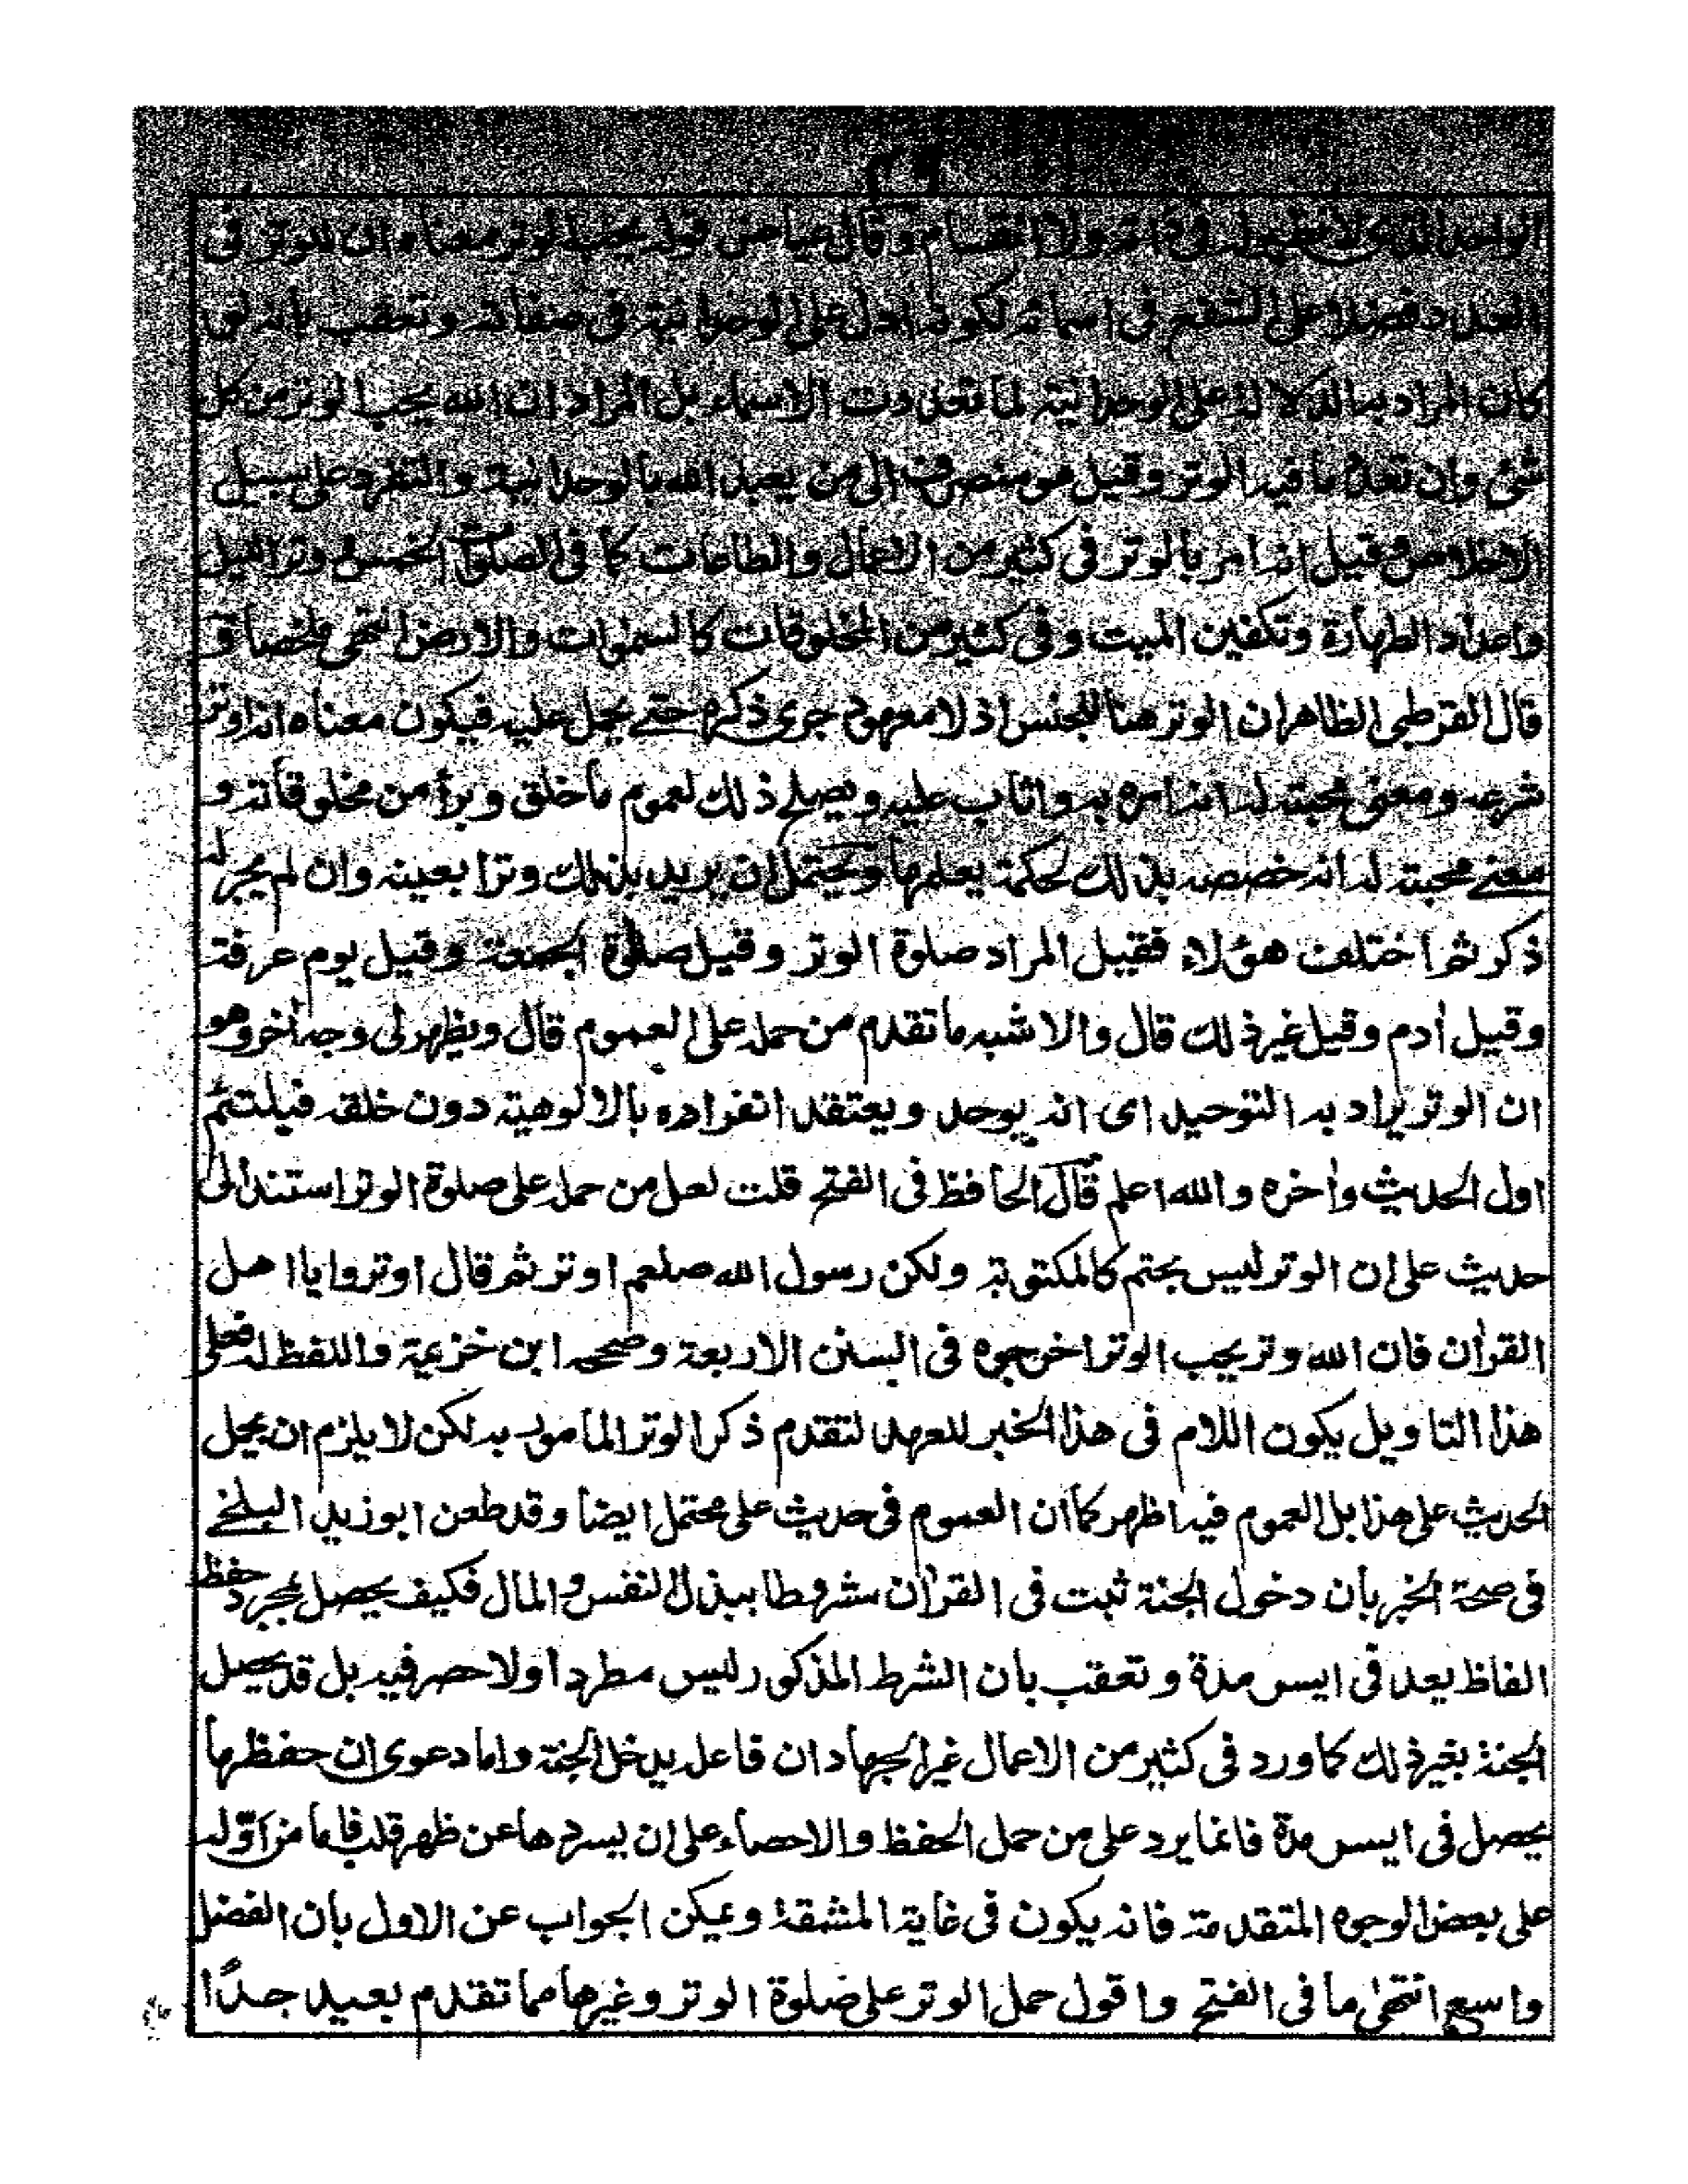 ٢٩
الواحد الذي لا نظير له في ذاته ولا انقسام وقال عياض قوله يحب الوتر معناه ان للوتر فى
العدد فضلا على الشفع فى اسمائه لكونه ادل على الوحدانية فى صفاته وتعقب بانه لو
كان المراد به الدلالة على الوحدانية لما تعددت الاسماء بل المراد ان الله يحب الوتر من كل
شئ وان تعدد ما فيه الوتر وقيل هو منصرف الى من يعبد الله بالوحدانية والتفرد على سبيل
الاخلاص وقيل انه امر بالوتر فى كثير من الاعمال والطاعات كما فى الصلوات الخمس ووتر الليل
واعداد الطهارة وتكفين الميت وفى كثير من المخلوقات كالسموات والارض انتهى ملخصا و
قال القرطبى الظاهر ان الوتر هنا للجنس اذ لا معهود جرى ذكره حتے يحمل عليه فيكون معناه انه وتر
شرعه ومعنى محبته له انه امره به واثاب عليه ويصلح ذلك لعموم ما خلق وبرأ من مخلوقاته و
معنے محبته له انه خصصه بذلك لحكمة يعلمها ويحتمل ان يريد بذلك وترا بعينه وان لم يجر له
ذكر ثم اختلف هؤلاء فقيل المراد صلوة الوتر وقيل صلوة الجمعة وقيل يوم عرفة
وقيل أدم وقيل غير ذلك قال والاشبه ما تقدم من حمله على العموم قال ويظهر لى وجه أخر وهو
ان الوتر يراد به التوحيد اى انه يوحد ويعتقد انفراده بالالوهية دون خلقه فيلتئم
اول الحديث وأخره والله اعلم قال الحافظ فى الفتح قلت لعل من حمله على صلوة الوتر استند الى
حديث على ان الوتر ليس بحتم كالمكتوبة ولكن رسول الله صلعم اوتر ثم قال اوتروا يا اهل
القرأن فان الله وتر يحب الوتر اخرجوه فى السنن الاربعة وصححه ابن خزيمة واللفظ له فعلى
هذا التاويل يكون اللام فى هذا الخبر للعهد لتقدم ذكر الوتر المأمور به لكن لا يلزم ان يحمل
الحديث على هذا بل العموم فيه اظهر كما ان العموم فى حديث على محتمل ايضا وقد طعن ابو زيد البلخے
فى صحة الخبر بأن دخول الجنة ثبت فى القرأن مشروطا ببذل النفس والمال فكيف يحصل بمجرد حفظ
الفاظ يعد فى ايسر مدة وتعقب بان الشرط المذكور ليس مطردا ولا حصر فيه بل قد يحصل
الجنة بغير ذلك كما ورد فى كثير من الاعمال غير الجهاد ان فاعله يدخل الجنة واما دعوى ان حفظها
يحصل فى ايسر مدة فانما يرد على من حمل الحفظ والاحصاء على ان يسردها عن ظهر قلب فاما من اوله
على بعض الوجوه المتقدمة فانه يكون فى غاية المشقة ويمكن الجواب عن الاول بأن الفضل
واسع انتهى ما فى الفتح واقول حمل الوتر على صلوة الوتر وغيرها مما تقدم بعيد جدًا